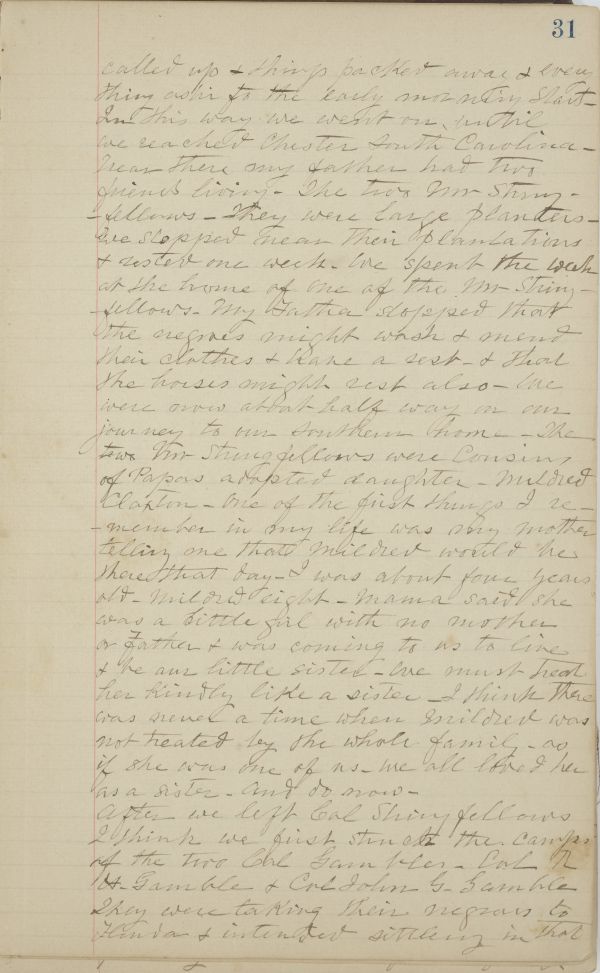 31
called up & things packed away & every
thing ashir to the early morning start -
In this way we went on, until
we reached Chester South Carolina -
Near there my father had two
friends living - The two Mr String -
- fellows - They were large planters -
We stopped near their plantations
& rested one week - We spent the week
at the home of one of the Mr String -
- fellows - My Father stopped that
the negroes might wash & mend
their clothes & have a rest - & that
the horses might rest also - We
were now about half way on our
journey to our southern home - The
two Mr Stringfellows were Cousins
of Papas adopted daughter - Mildred
Claxton - One of the first things I re -
- member in my life was my mother
telling me that Mildred would be
there that day - I was about four years
old - Mildred eight - Mama said she
was a little girl with no mother
or Father & was coming to us to live
& be our little sister - We must treat
her kindly like a sister - I think there
was never a time when Mildred was
not treated by the whole family - as
if she was one of us - we all loved her
as a sister - and do now -
After we left Col Stringfellows
I think we first struck the camps
of the two Col Gambles - Col R
H - Gamble & Col John G - Gamble
They were taking their negroes to
Florida & intended settling in that